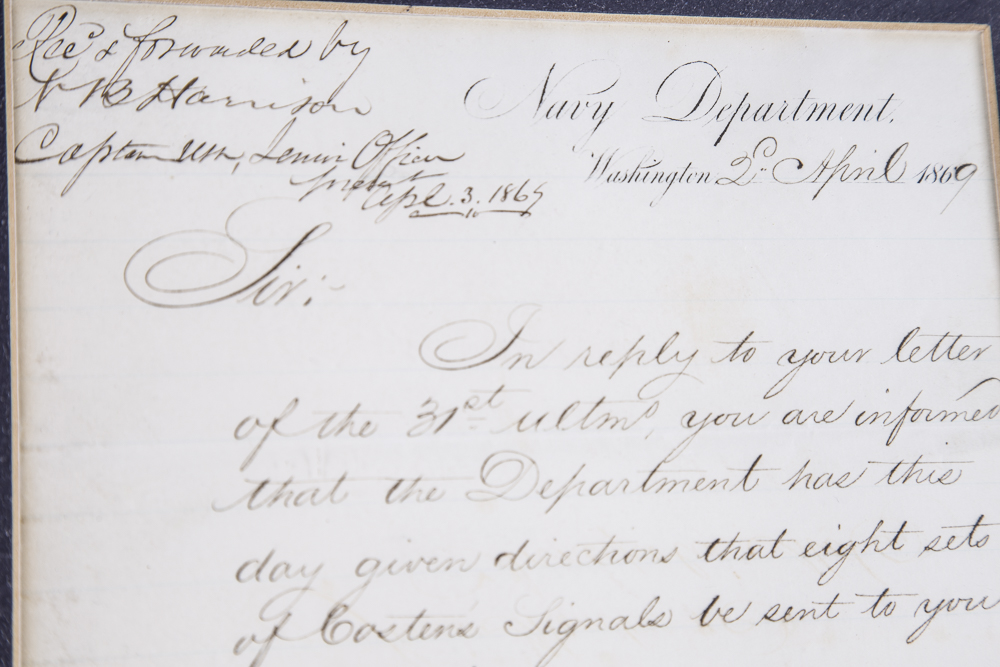 Rec^d & forwarded by
N B Harrison
Captain USN, Senior Officer
present
Apl. 3. 1869
Navy Department.
Washington 2^d April 1869
Sir:
In reply to your letter
of the 31st ultmo, you are informed
that the Department has this
day given directions that eight sets
of Costens Signals be sent to you